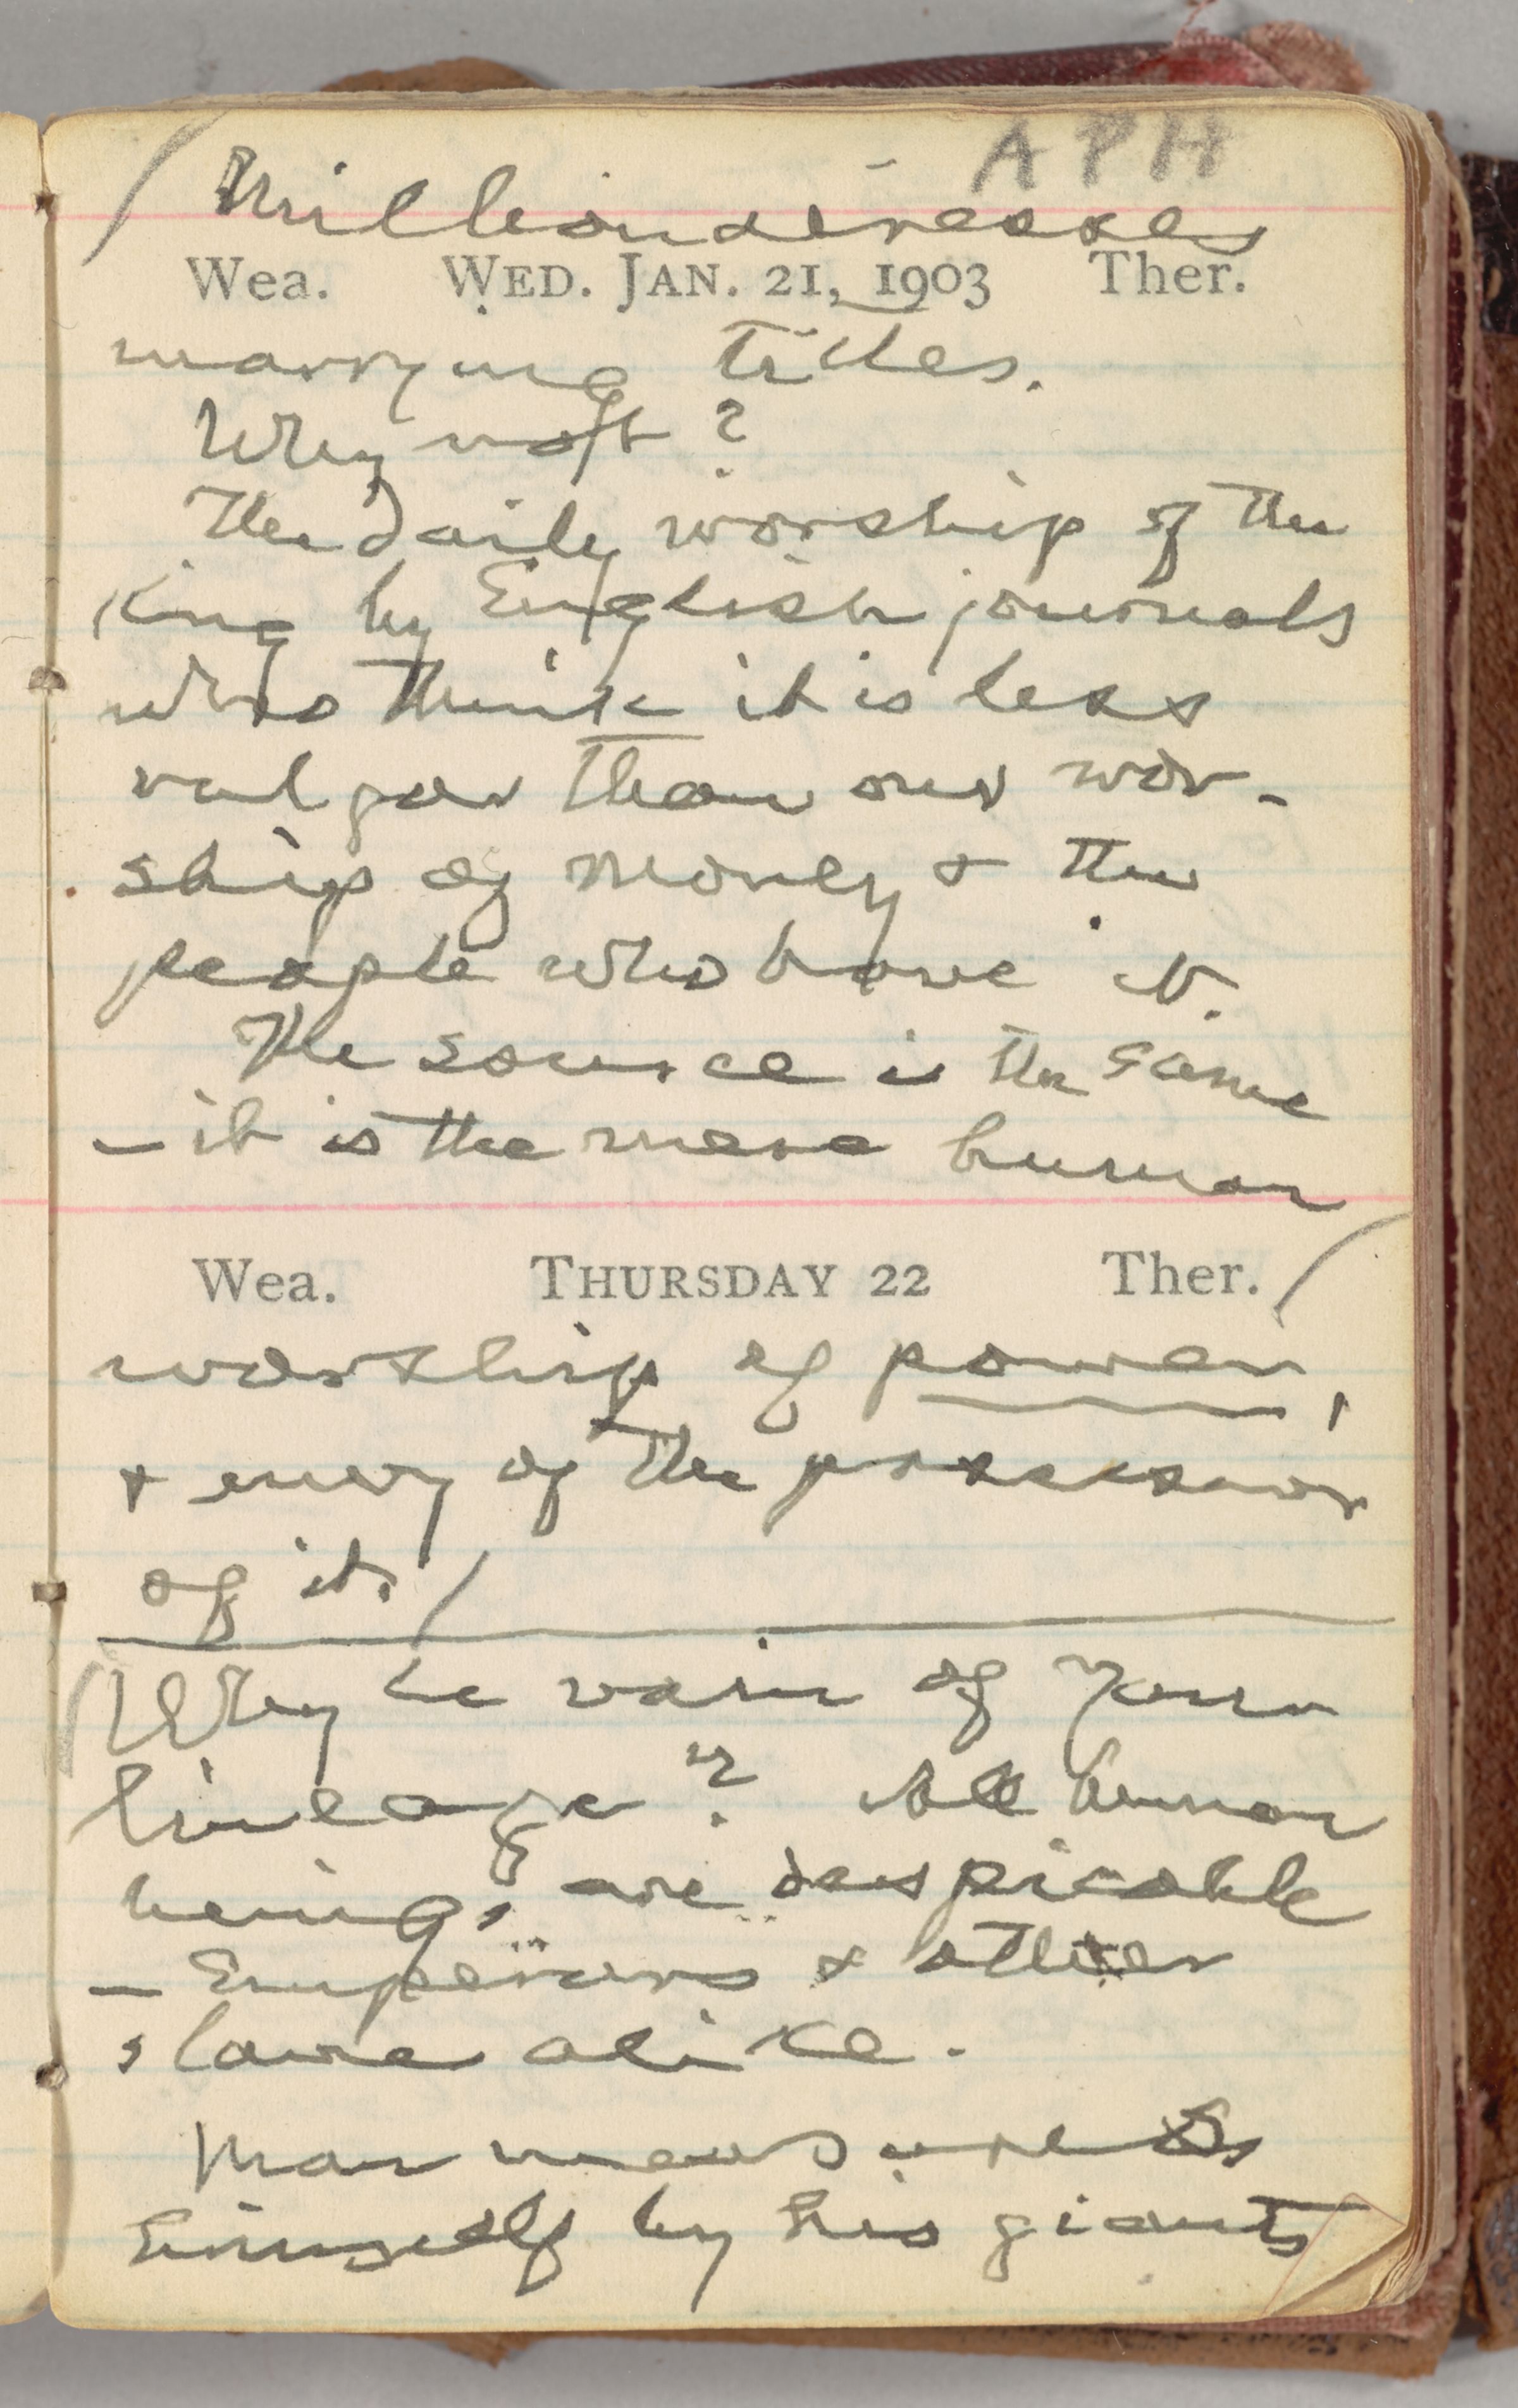 APH
Millionairesses
Wea. WED. JAN. 21, 1903 Ther.
marrying titles.
Why not?
The daily worship of the
King by English journals
who think it is less
vulgar than our wor-
ship of money & the
people who have it.
The source is the same
— it is the mere human
Wea. THURSDAY 22 Ther.
worship of power,
& envy of the possessor
of it. /
Why be vain of your
lineage? All human
beings are despicable
— Emperors & other
slave alike.
Man measures
himself by his giants